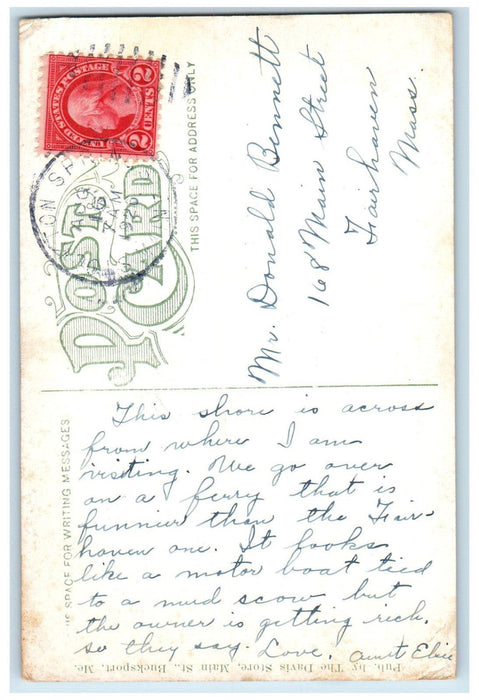 UNITED STATES POSTAGE
2 CENTS 2
POST CARD
THIS SPACE FOR ADDRESS ONLY
Mr. Donald Bennett
168 Main Street
Fairhaven
Mass.
THIS SPACE FOR WRITING MESSAGES
This shore is across
from where I am
visiting. We go over
on a ferry that is
funnier than the Fair-
haven one. It looks
like a motor boat tied
to a mud scow but
the owner is getting rich,
so they say. Love. Aunt Elsie
Pub. by The Davis Store, Main St., Bucksport, Me.